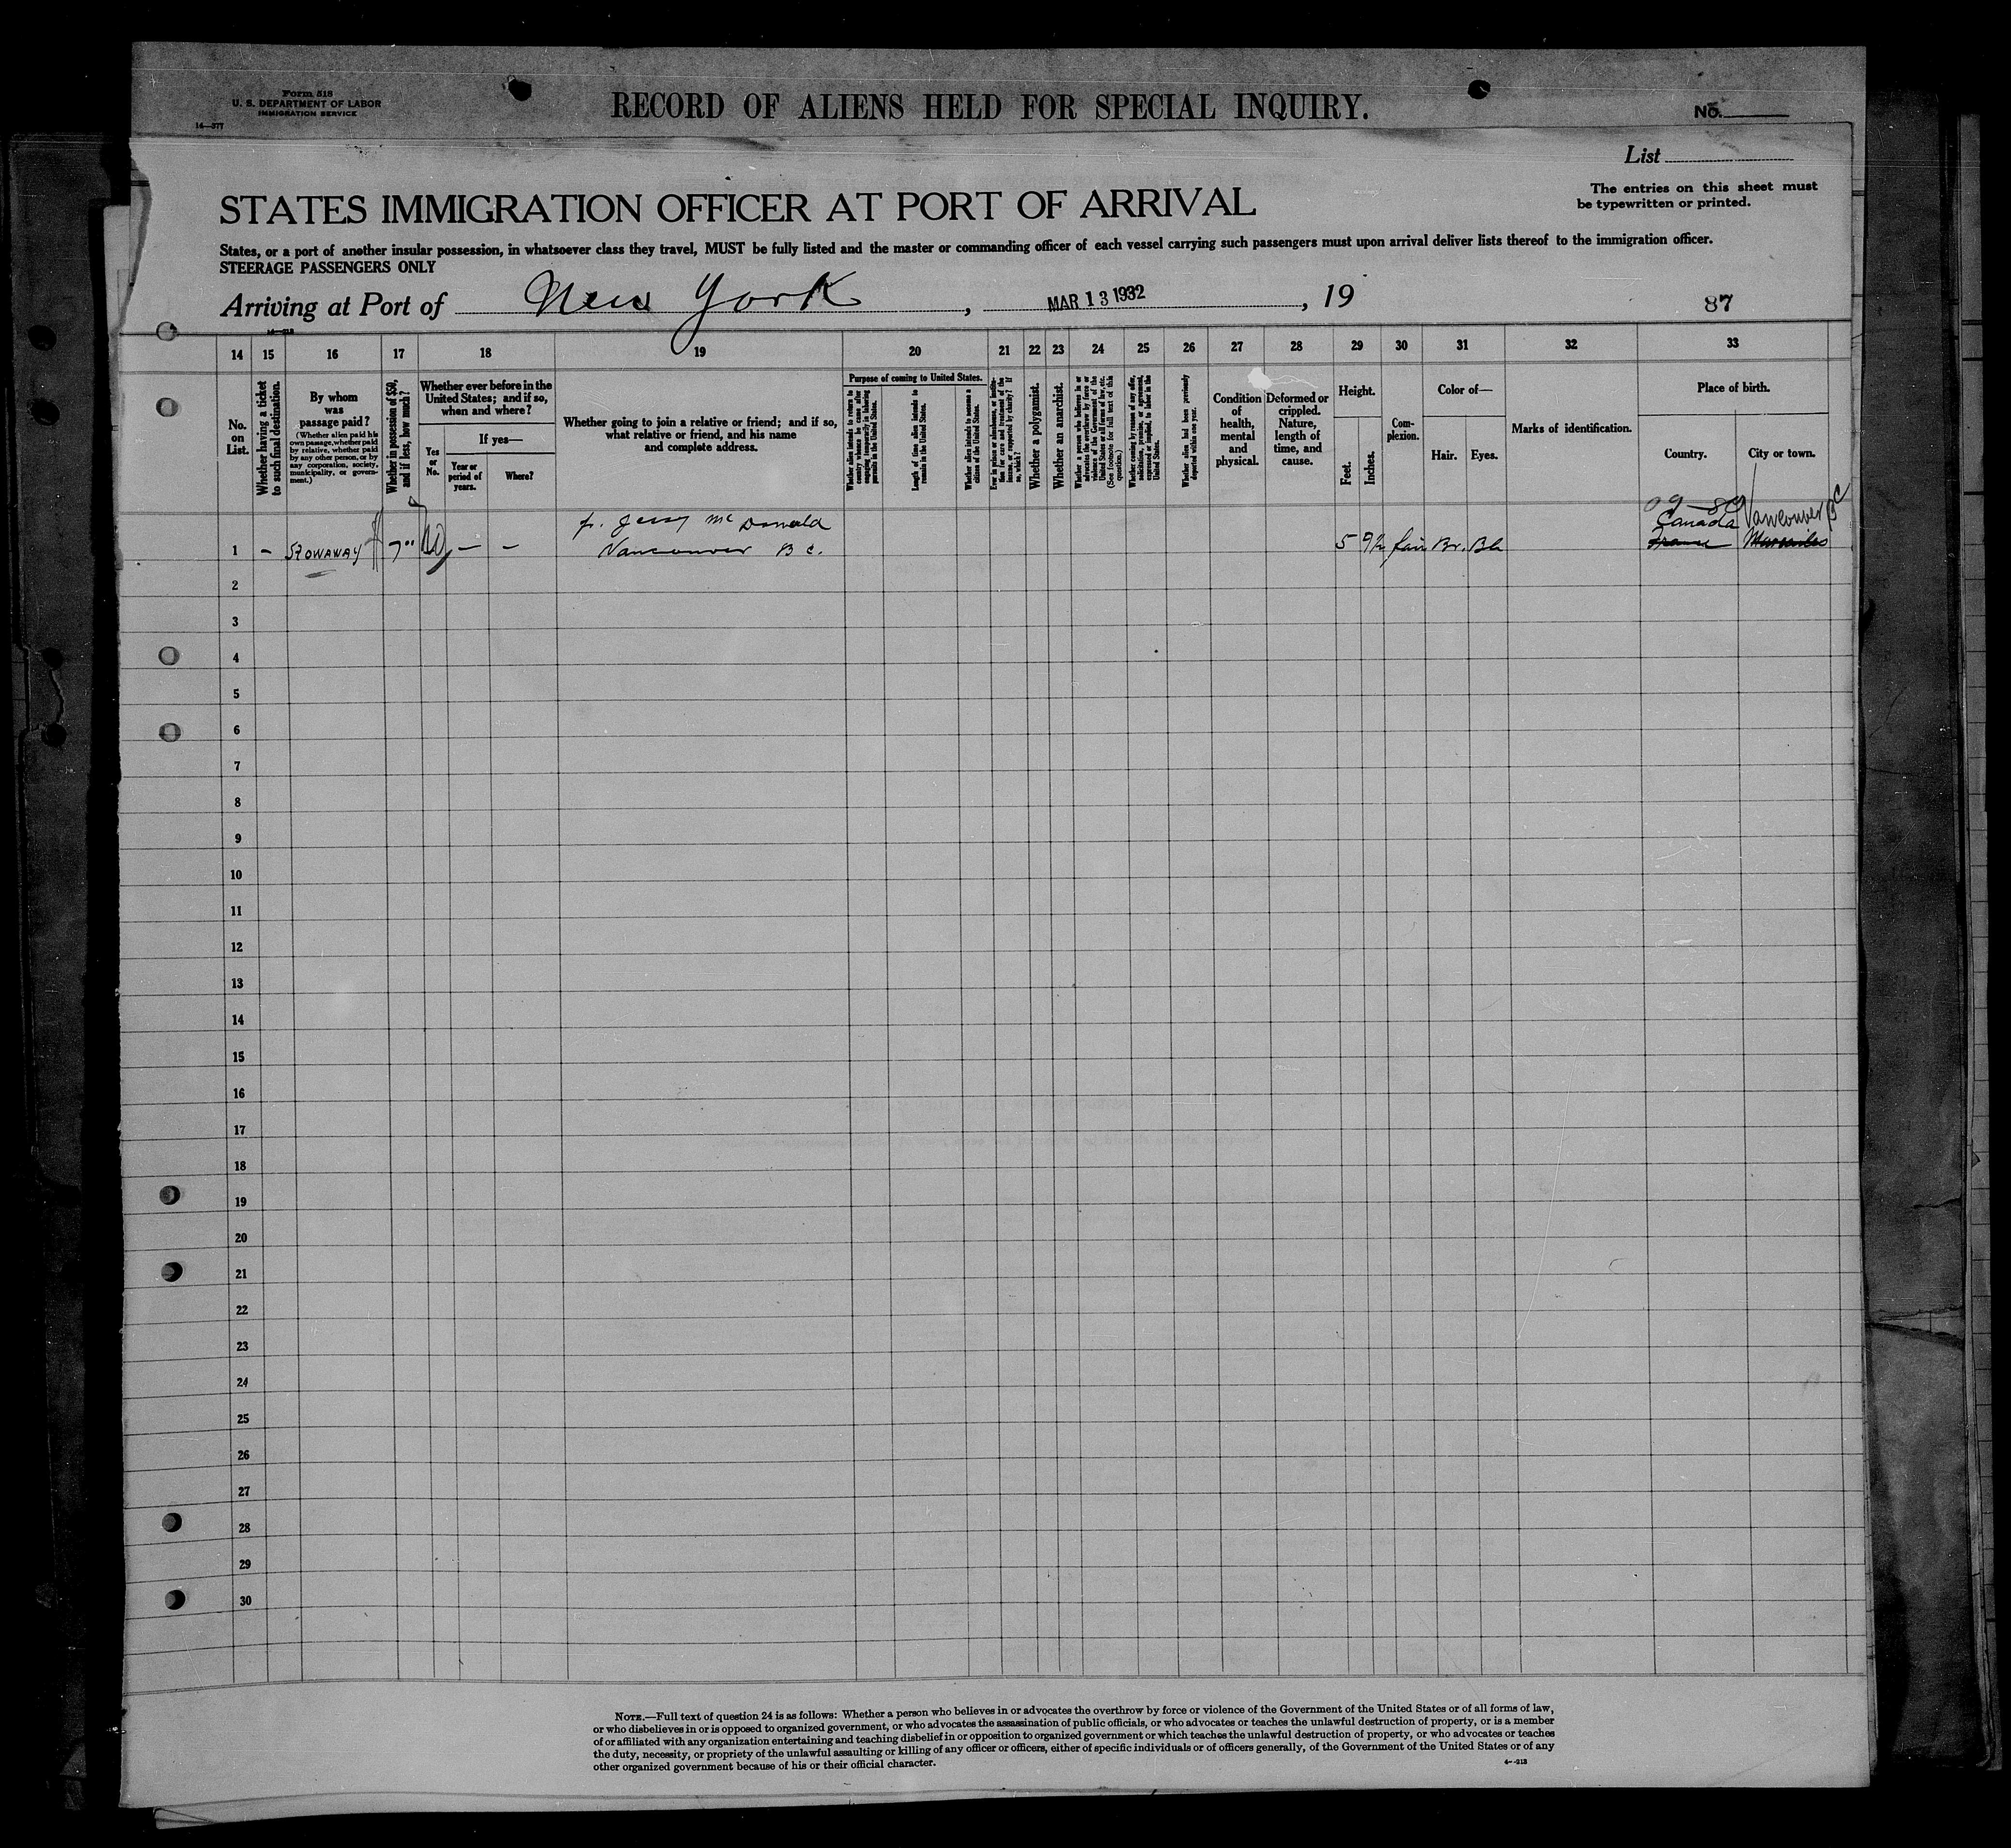 Form 518
U. S. DEPARTMENT OF LABOR
IMMIGRATION SERVICE
14—377
RECORD OF ALIENS HELD FOR SPECIAL INQUIRY.
No.
List
The entries on this sheet must
be typewritten or printed.
STATES IMMIGRATION OFFICER AT PORT OF ARRIVAL
States, or a port of another insular possession, in whatsoever class they travel, MUST be fully listed and the master or commanding officer of each vessel carrying such passengers must upon arrival deliver lists thereof to the immigration officer.
STEERAGE PASSENGERS ONLY
Arriving at Port of New York, MAR 13 1932, 19
87
14 15 16 17 18 19 20 21 22 23 24 25 26 27 28 29 30 31 32 33
No. on List.
Whether having a ticket to such final destination.
By whom was passage paid?
(Whether alien paid his own passage, whether paid by relative, whether paid by any other person, or by any corporation, society, municipality, or government.)
Whether in possession of $50, and if less, how much?
Whether ever before in the United States; and if so, when and where?
Yes or No.
If yes—
Year or period of years.
Where?
Whether going to join a relative or friend; and if so, what relative or friend, and his name and complete address.
Purpose of coming to United States.
Whether alien intends to return to country whence he came after engaging temporarily in laboring pursuits in the United States.
Length of time alien intends to remain in the United States.
Whether alien intends to become a citizen of the United States.
Ever in prison or almshouse, or institution for care and treatment of the insane, or supported by charity? If so, which?
Whether a polygamist.
Whether an anarchist.
Whether a person who believes in or advocates the overthrow by force or violence of the Government of the United States or all forms of law, etc. (See footnote for full text of this question.)
Whether coming by reason of any offer, solicitation, promise, or agreement, expressed or implied, to labor in the United States.
Whether alien had been previously deported within one year.
Condition of health, mental and physical.
Deformed or crippled. Nature, length of time, and cause.
Height.
Feet.
Inches.
Complexion.
Color of—
Hair.
Eyes.
Marks of identification.
Place of birth.
Country.
City or town.
f. Jerry McDonald
Canada Vancouver BC
1 – STOWAWAY 7 no – – Vancouver B C. 5 9½ fair Br. Bl France Marseilles
2
3
4
5
6
7
8
9
10
11
12
13
14
15
16
17
18
19
20
21
22
23
24
25
26
27
28
29
30
NOTE.—Full text of question 24 is as follows: Whether a person who believes in or advocates the overthrow by force or violence of the Government of the United States or of all forms of law,
or who disbelieves in or is opposed to organized government, or who advocates the assassination of public officials, or who advocates or teaches the unlawful destruction of property, or is a member
of or affiliated with any organization entertaining and teaching disbelief in or opposition to organized government or which teaches the unlawful destruction of property, or who advocates or teaches
the duty, necessity, or propriety of the unlawful assaulting or killing of any officer or officers, either of specific individuals or of officers generally, of the Government of the United States or of any
other organized government because of his or their official character.